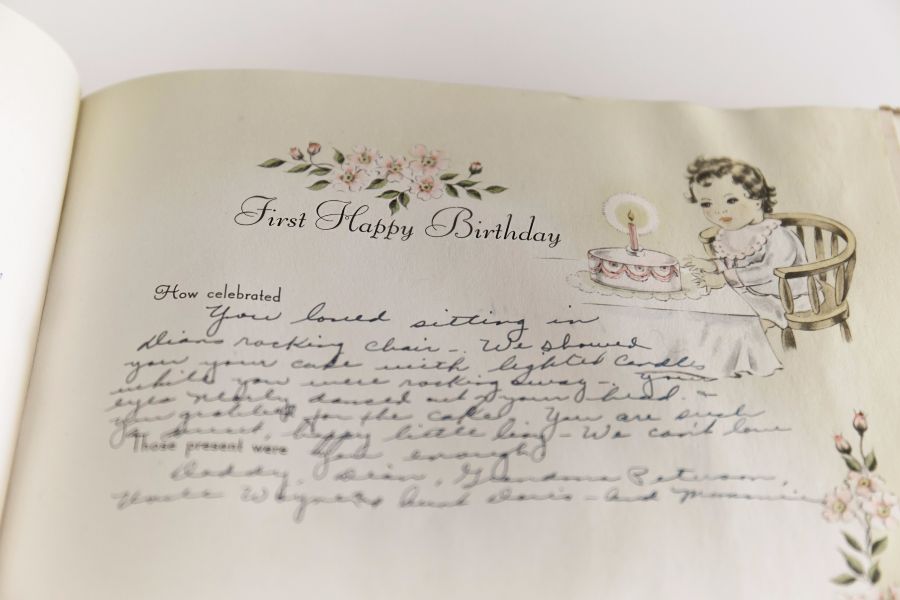 First Happy Birthday
How celebrated
You loved sitting in
Dians rocking chair - We showed
you your cake with lighted candles
while you were rocking away - your
eyes nearly danced out of your head. -
You grabbed for the cake! You are such
a sweet, happy little boy - We can't love
Those present were
you enough
Daddy, Dian, Grandma Peterson,
Uncle Wayne & Aunt Doris - and Mommie